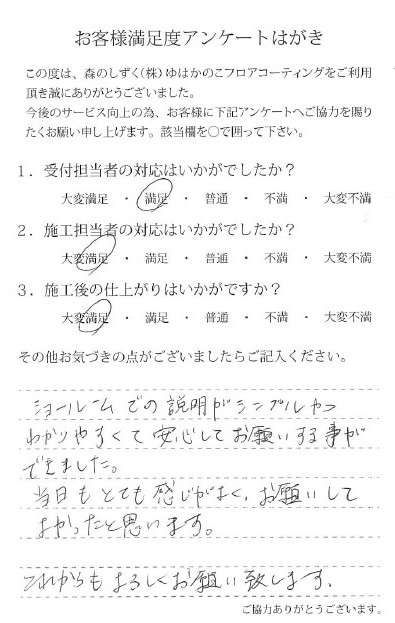 お客様満足度アンケートはがき
この度は、森のしずく(株)ゆはかのこフロアコーティングをご利用
頂き誠にありがとうございました。
今後のサービス向上の為、お客様に下記アンケートへご協力を賜り
たくお願い申し上げます。該当欄を○で囲って下さい。
1．受付担当者の対応はいかがでしたか？
大変満足 ・ 満足 ・ 普通 ・ 不満 ・ 大変不満
2．施工担当者の対応はいかがでしたか？
大変満足 ・ 満足 ・ 普通 ・ 不満 ・ 大変不満
3．施工後の仕上がりはいかがですか？
大変満足 ・ 満足 ・ 普通 ・ 不満 ・ 大変不満
その他お気づきの点がございましたらご記入ください。
ショールームでの説明がシンプルかつ
わかりやすくて安心してお願いする事が
できました。
当日もとても感じがよく、お願いして
よかったと思います。
これからもよろしくお願い致します。
ご協力ありがとうございます。